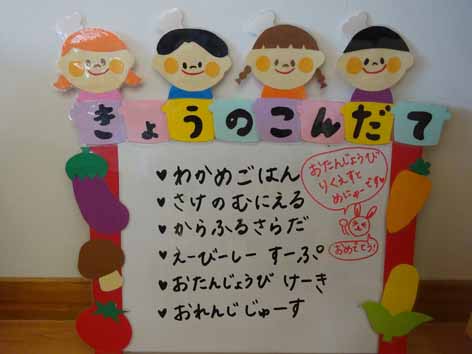 きょうのこんだて
♥わかめごはん
♥さけのむにえる
♥からふるさらだ
♥えーびーしーすーぷ
♥おたんじょうびけーき
♥おれんじじゅーす
おたんじょうび
りくえすと
めにゅーです♥
おめでとう!